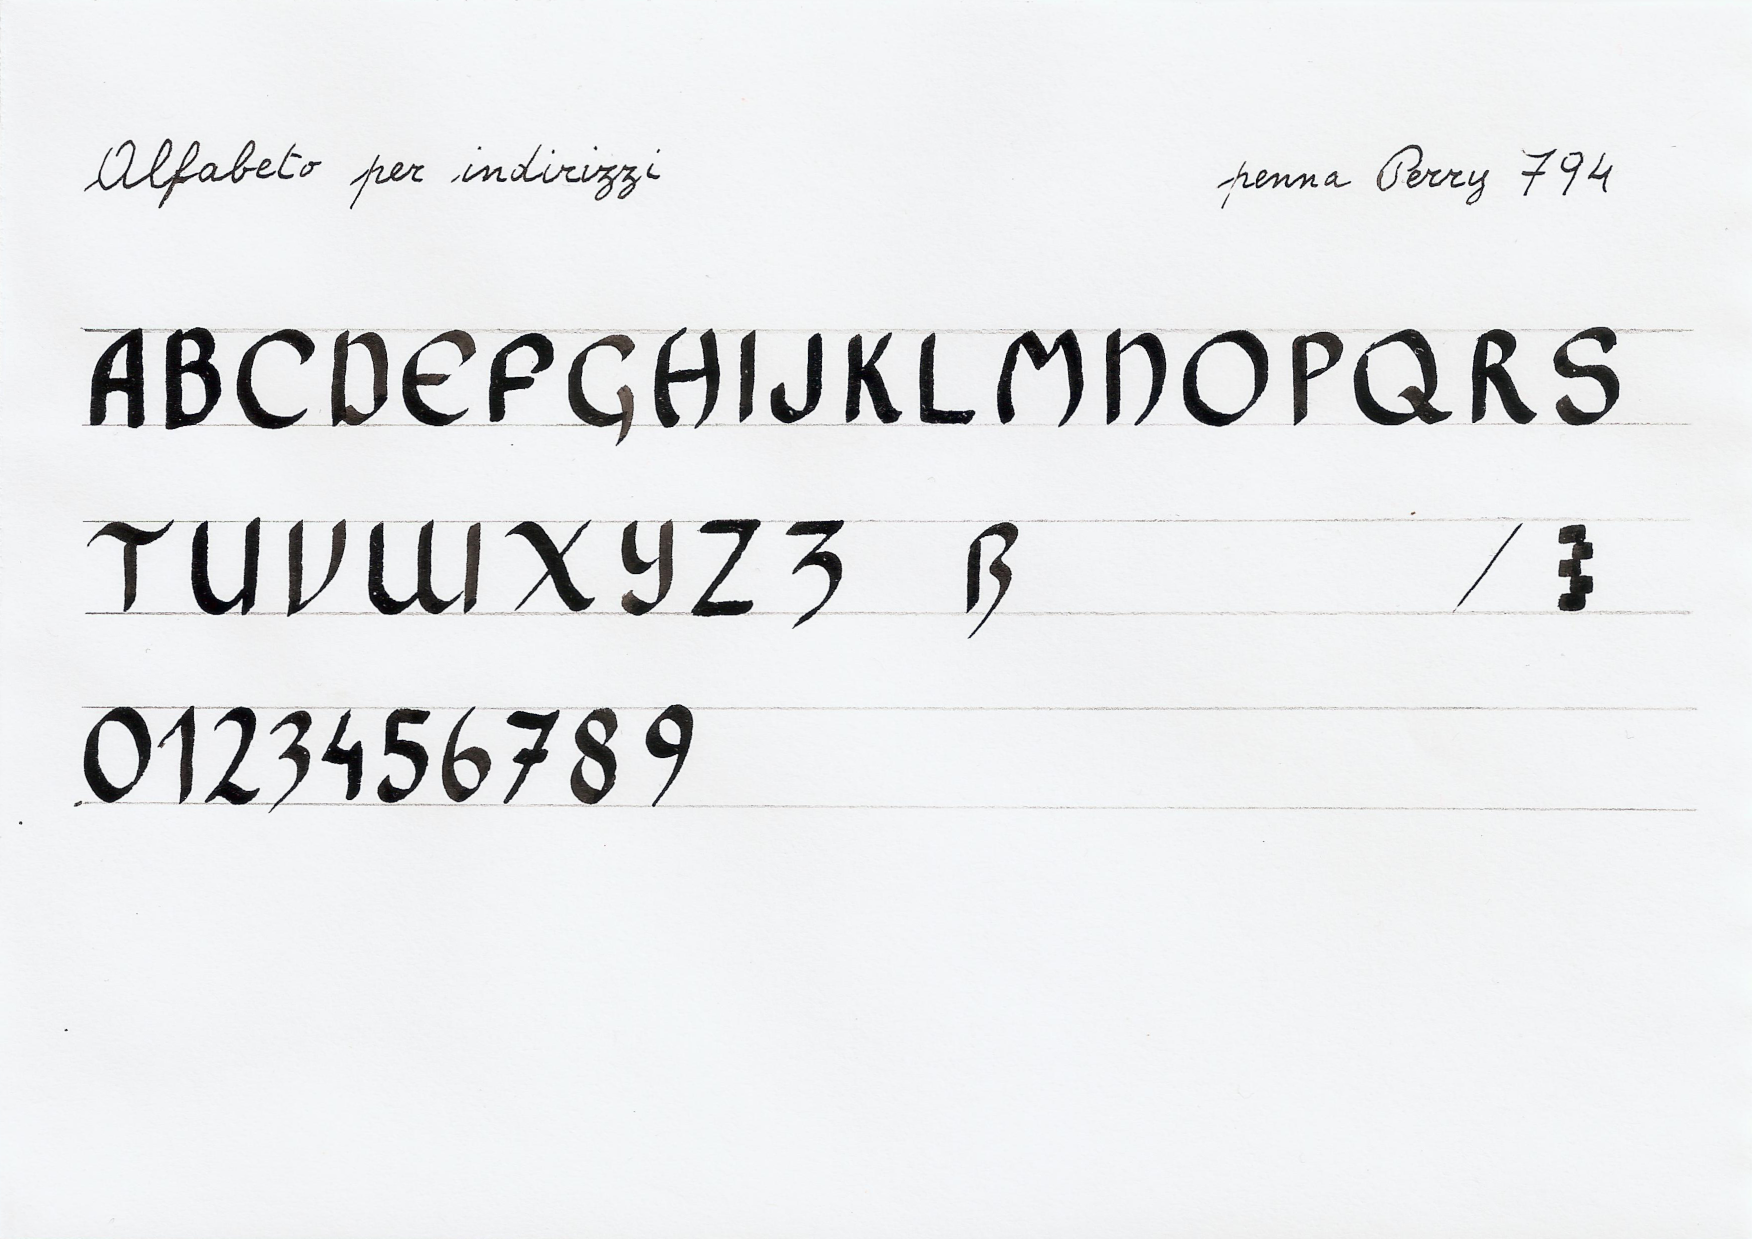 Alfabeto per indirizzi penna Perry 794
ABCDEFGHIJKLMNOPQRS
TUVWXYZʒ ß /
0123456789